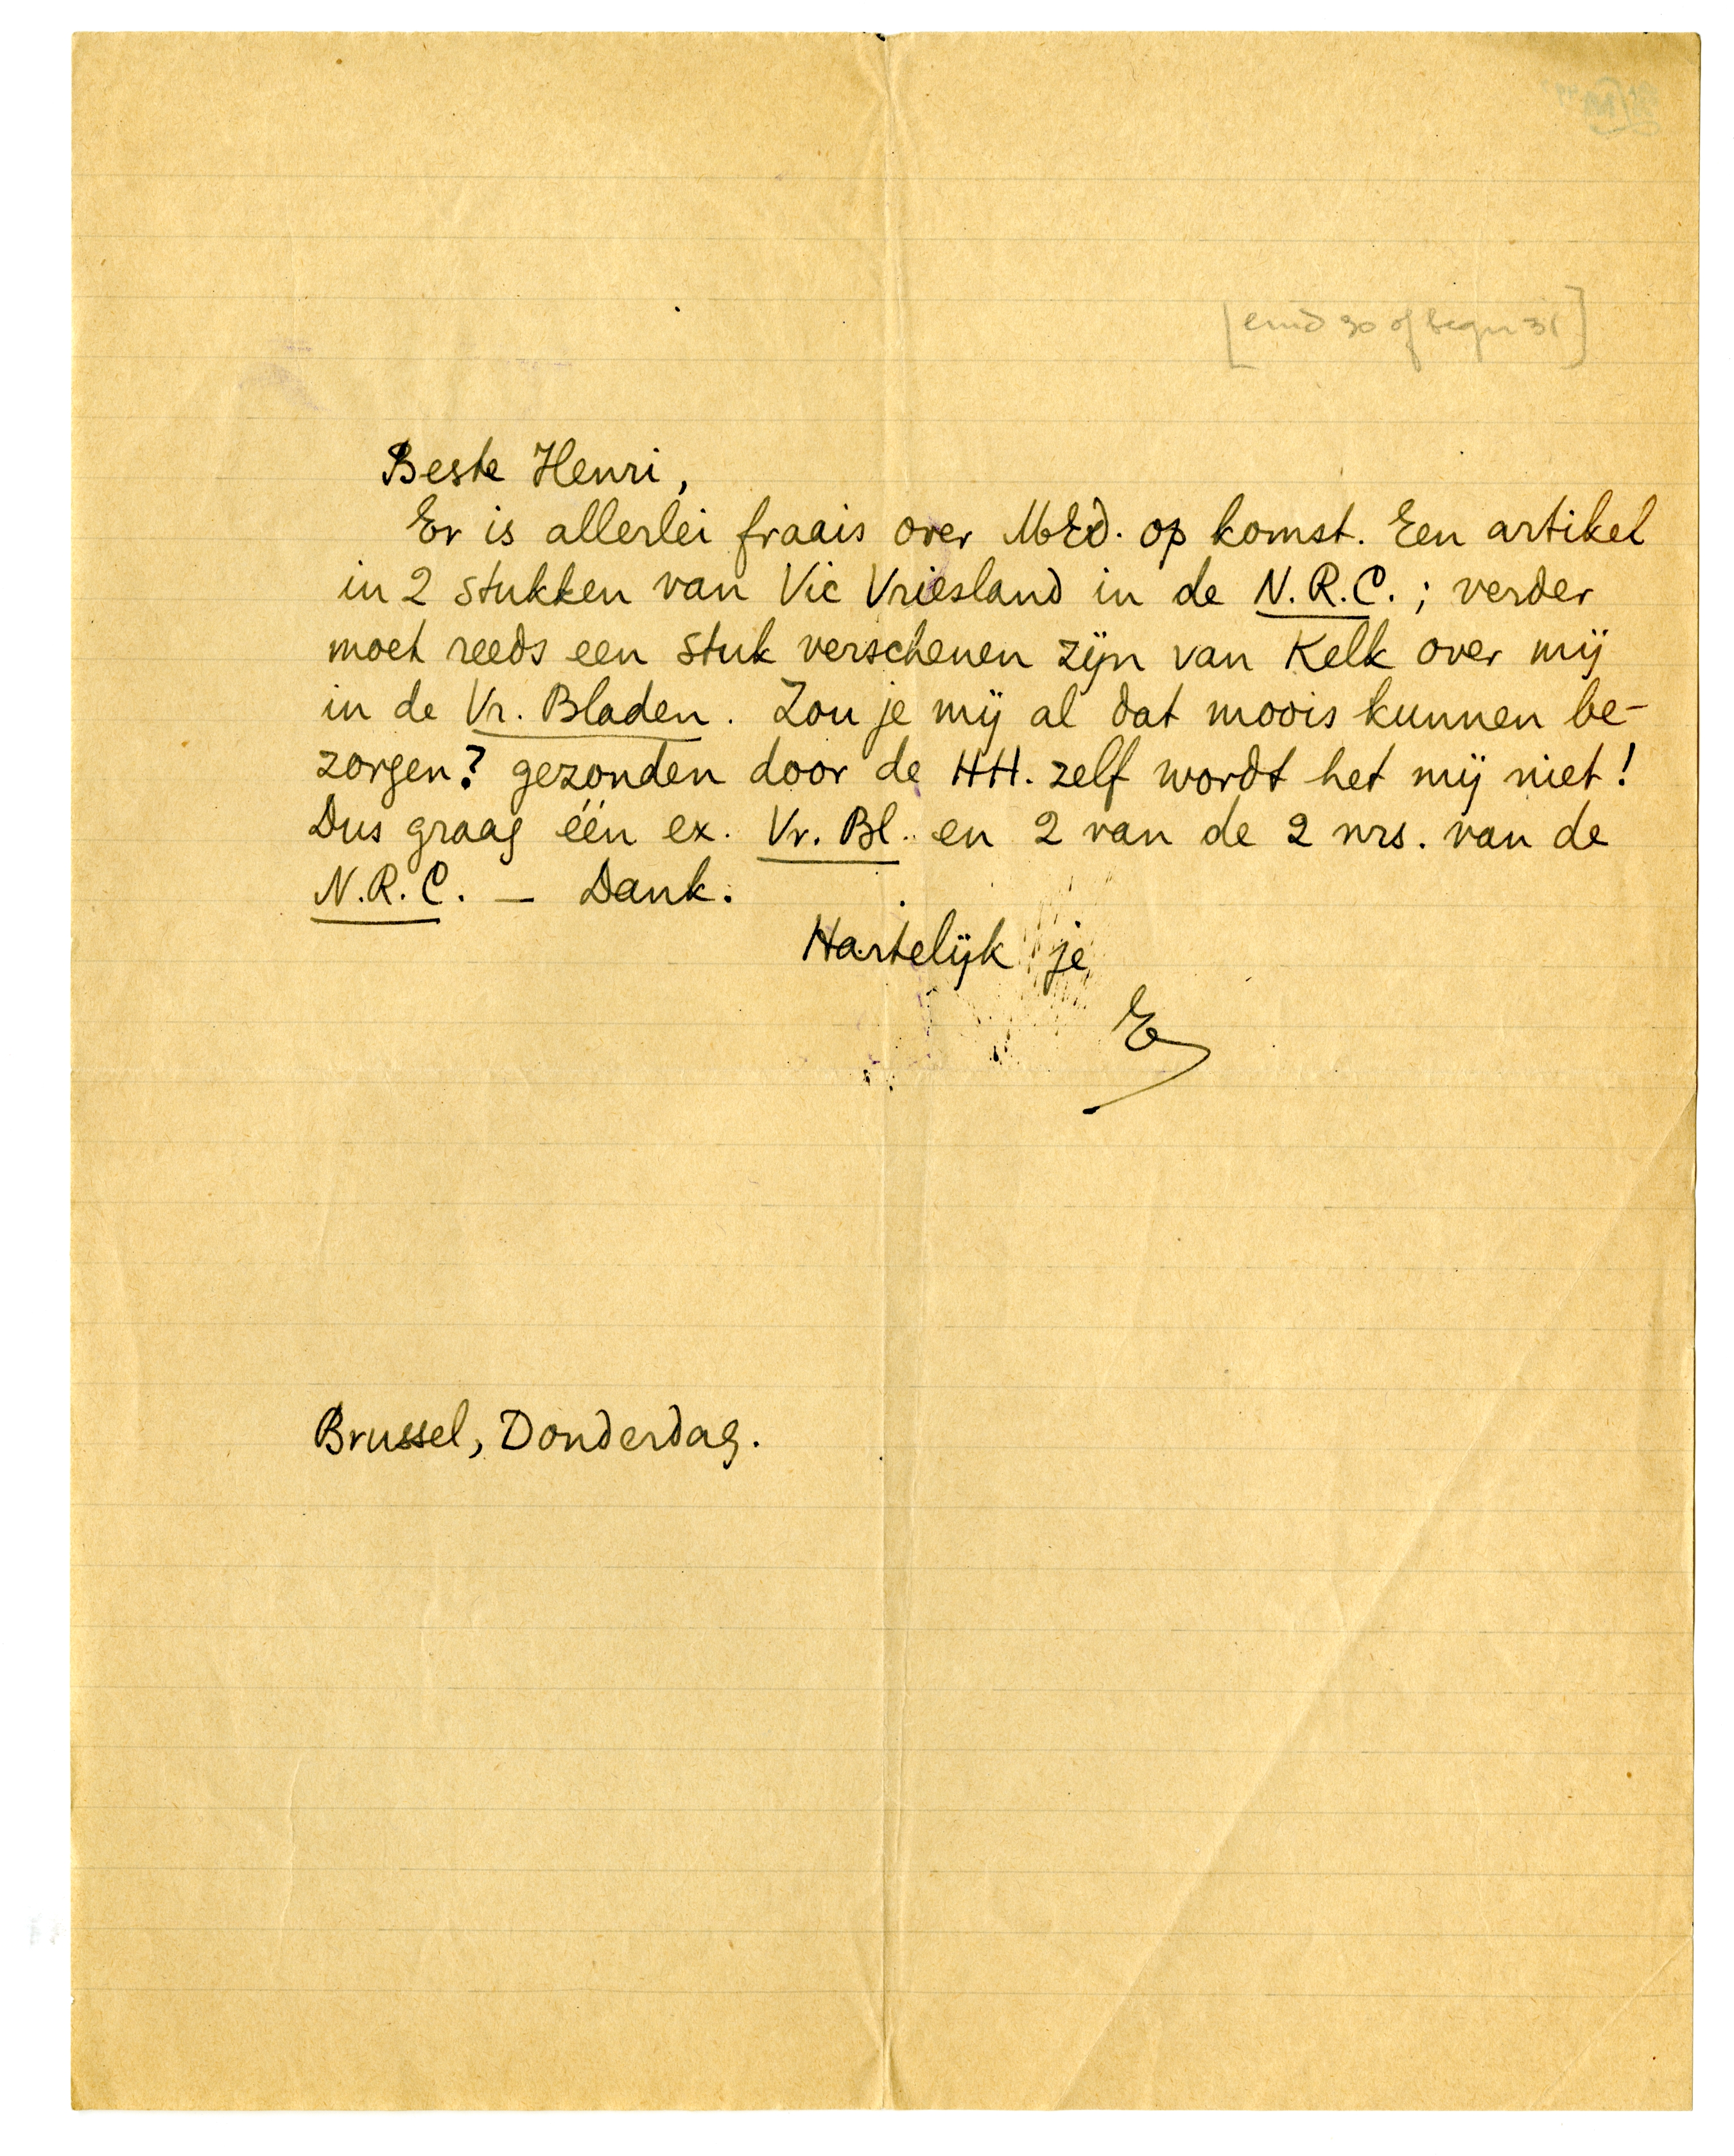 [eind 30 of begin 31]
Beste Henri,
Er is allerlei fraais over MEd. op komst. Een artikel
in 2 stukken van Vic Vriesland in de N.R.C.; verder
moet reeds een stuk verschenen zijn van Kelk over mij
in de Vr. Bladen. Zou je mij al dat moois kunnen be-
zorgen? gezonden door de HH. zelf wordt het mij niet!
Dus graag één ex. Vr. Bl. en 2 van de 2 nrs. van de
N.R.C. — Dank.
Hartelijk je
E
Brussel, Donderdag.